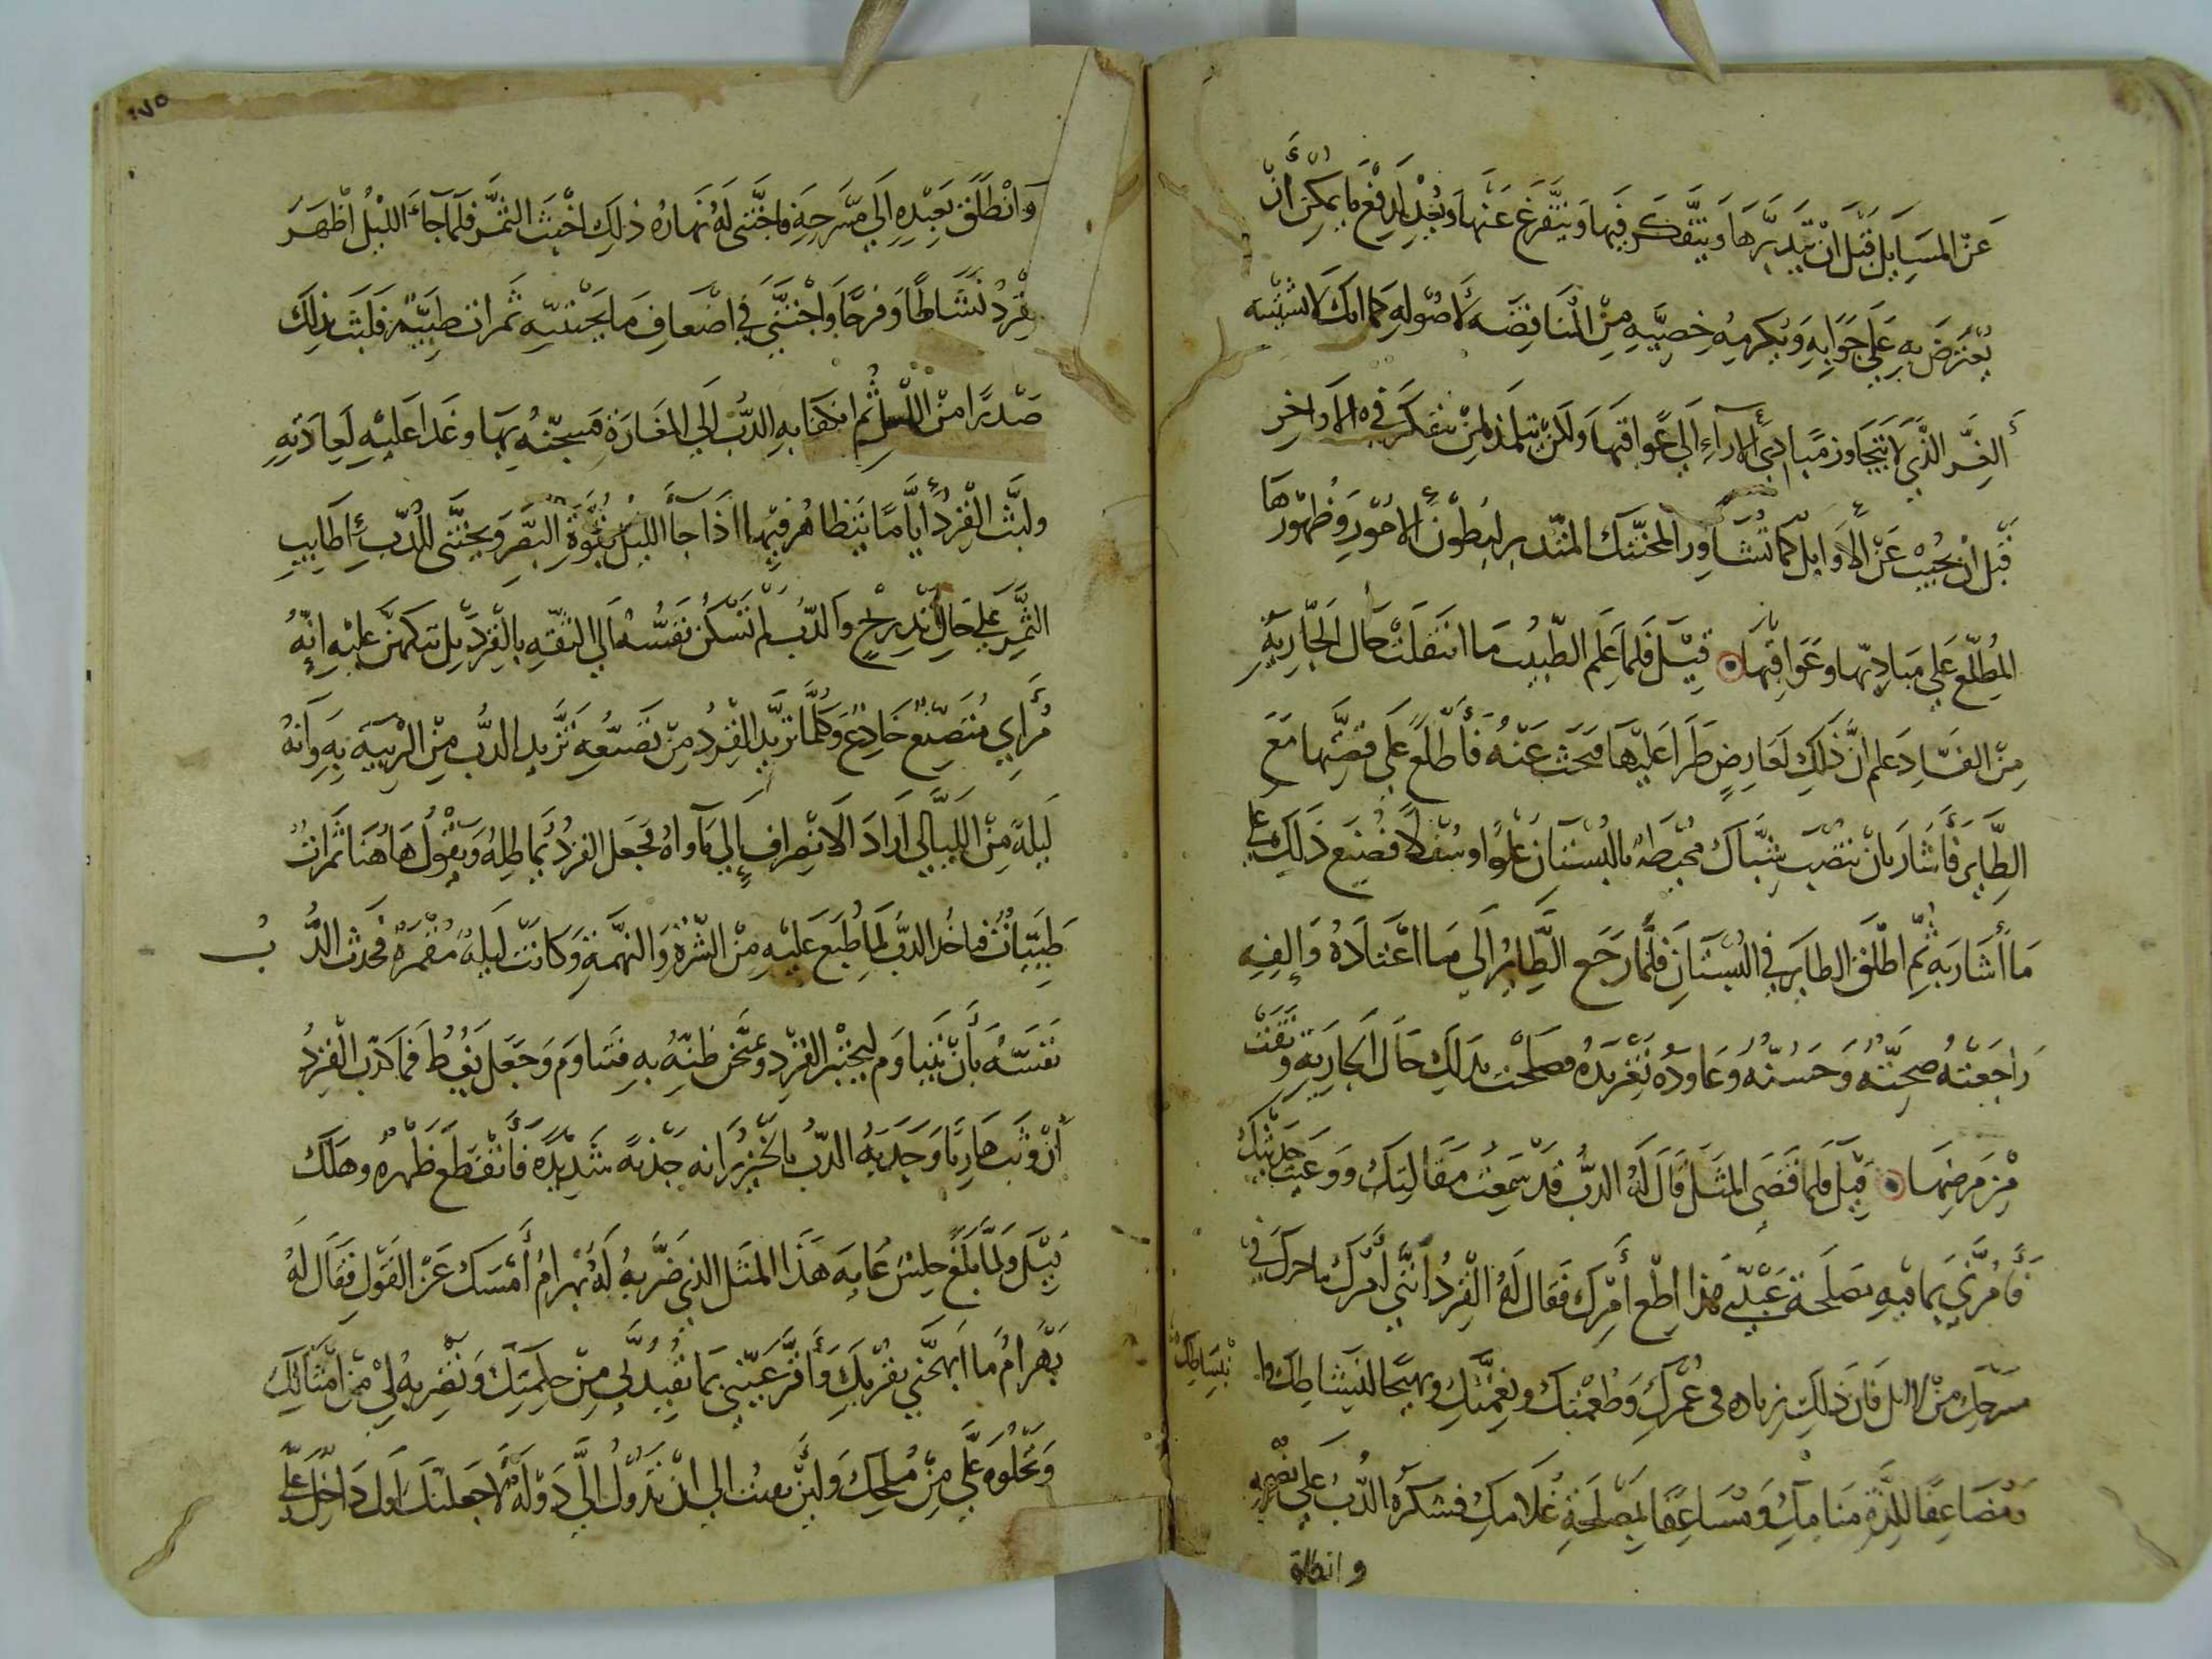 عَنْ المسَايِل قَبَلَ انْ تَتَدبَّرهَا وَيتَّفكَّر فيهَا وَيتَّفرَغ عَنْهَا وَيُعْدِ لِدَفْع مَا يمكِنُ أَنْ
يُعْتَرَضَ بهِ عَلَى جَوَابِهِ وَيُكرمهُ خصمِهِ مِنْ المُنَاقضَه لأصُولهِ كما انكَ لَا تستشِير
الغِرّ الذَّي لَا يَتَجَاوز مَبَادئ الآراءِ الَى عَوَاقبَهَا وَلكنْ تلمذ لمنْ يتفكرَ فى الاَواخِرِ
قَبْلَ انْ يجُيْبَ عَنْ الأَوَايِل كما تُشَاوِر المحنّنك المتدبر لبُطْونْ الامُوْرِ وَظهُوْرهَا
المُطِلّع عَلَى مَبَادِيهَا وعَوَاقِبهَا قِيْل فلمَا عَلِم الطَبيبْ مَا انتقَلتْ حَال الجَاريَة
مِنْ الفسَادِ عَلم انَّ ذَلكَ لعَارِضٍ طَرَا عَليْهَا فبحَثَ عَنْهُ فَأطّلَعَ عَلَى قصّتهَا مَعَ
الطَّاير فَأشَارَ بانْ تنصَبْ شبَّاك مُحيطة بالبُسْتَانَ عُلْوًا وسُفْلًا فصُنعِ ذَلكَ عَلي
مَا أشَارَ بهِ ثمّ اطْلَقَ الطايَر فيْ البُسْتَانِ فلمَّا رَجَع الطَّايُر الَى مَا اعْتَادَهُ وَإلِفِهِ
رَاجَعَتْهُ صِحّتَهُ وَحَسُنهُ وَعَاودَهُ تَغْريدُه فصَلحَتْ بذَلكَ حَالَ الجَاريَةِ وَنَقهَتْ
مِنْ مَرضِهَا قِيْل فلمَا قضَى المثَل قالَ لهُ الدبُ قدْ سَمعتُ مَقَالتكَ وَوَعيْتُ حَديثكَ
فَأمُرْنِي بمَا فيْهِ مصَلحَة عَبْدي هذَا اطِعْ أمْرَكَ فقَال لهُ القِردُ انَّني أمُرَكَ باحرَاك في
مسَرّحكَ منْ الليْل فَانَ ذَلكَ زيادَه فى عُمْرك وَطُعْمتكَ ونِعْمَّتكِ وبهيجًا لنشَاطِكَ وا
نْبسَاطِكَ
وَمُضَاعِفًا للذّةِ مَنَامكَ وَمُسَاعِفًا لمصْلَحَةِ غُلامكَ فشكَرهُ الدُّبُ عَلى نصْحِهِ
وانطلق
١٧٥
وَانْطَلَقَ بَعِبْدِهِ الَي مَسَرحِهِ فاجْتَنى لَهُ نهَارهُ ذلِكَ اخْبَث الثمَّرِ فلمّا جَاءَ اللّيْلُ اظْهَرَ
القِرْدُ نَشَاطًا وَفرحًا وَاجْتنَي فيْ اضْعَافِ مَا يَجْتنيْه ثمَراتٍ طيّبةً فلبَثَ بذلكَ
صَدْرًا مِنْ الليْل ثُم انكفَا بهِ الدبُ الَي المغَارَة فسَجنهُ بهَا وغَدا عَليْهِ لعَادَتهِ
ولبثَ القِرْدُ أيَّامًا يتظاهَر فيْهِا اذا جَآ الليْل بقُوَّة البَصَرِ وَيجَتنى للدّبِ أطَايبِ
الثمَّرِ عَلى حَالِ تَدْريْجِ وَالدّبُ لمْ تَسْكُنْ نَفسُهُ الَى الثقَهِ بالقِرْدِ بلْ يتكهنّ عَليْهِ انِّهُ
مُرَايٍ مُتَصَنّع خَادعٌ وَكلمّا تزيّد القِرْدُ مِنْ تصَنّعهِ تَزّيد الدّبُ مِنْ الرّيْبَهِ بهِ وَانهُ
ليَلةً مِنْ الليَالي ارَادَ الانِصرَافِ إلَي مَأواهُ فجَعَل القردُ يمَاطِلهُ وَيقوُلُ هَاهُنَا ثمَرَاتٌ
طَيّباتٌ فيَاخُذ الدّبَ لمَا طُبعَ عَليْهِ مِنْ الشّرَة وَالنّهْمَةِ وَكَانَتْ لَيلةً مُقمَرةً فحَدثَ الدُّ بُ
نَفسَهُ بأنْ يَتنَاوَم ليخْتبَر القِرْدِ ويمتحنْ ظَنّهُ بهِ فتنَاوَم وَجَعَل يَغُطُ فمَا كذّبَ القِرْدُ
أنْ وَثَب هَاربًا وَجَذَبَهُ الدّبُ بالخيْزرَانه جَذْبهً شَديْدَة فَانْقَطَع ظَهْرهُ وهَلكَ
قيْل وَلمّا بَلَغَ حلِسْ عَابِه هَذَا المثَل الذي ضَرَبهُ لَهُ بَهْرامُ أمْسَكَ عَنْ القَوْلِ فقَال لهُ
بَهْرامُ مَا ابَهجَني بقُرْبكَ وَأقرّ عَيْني بمَا تفيْدُني مِنْ حِكمتكَ وَتضْربهُ ليْ مِنْ امثَالكَ
وَتجلُوه عَليَّ مِنْ مُلحكَ وَلئنْ بقيتُ الي انْ تَدوُلُ اليَّ دَوْلةٌ لاجعَلنّكَ أوَل دَاخلٍ عَليّ